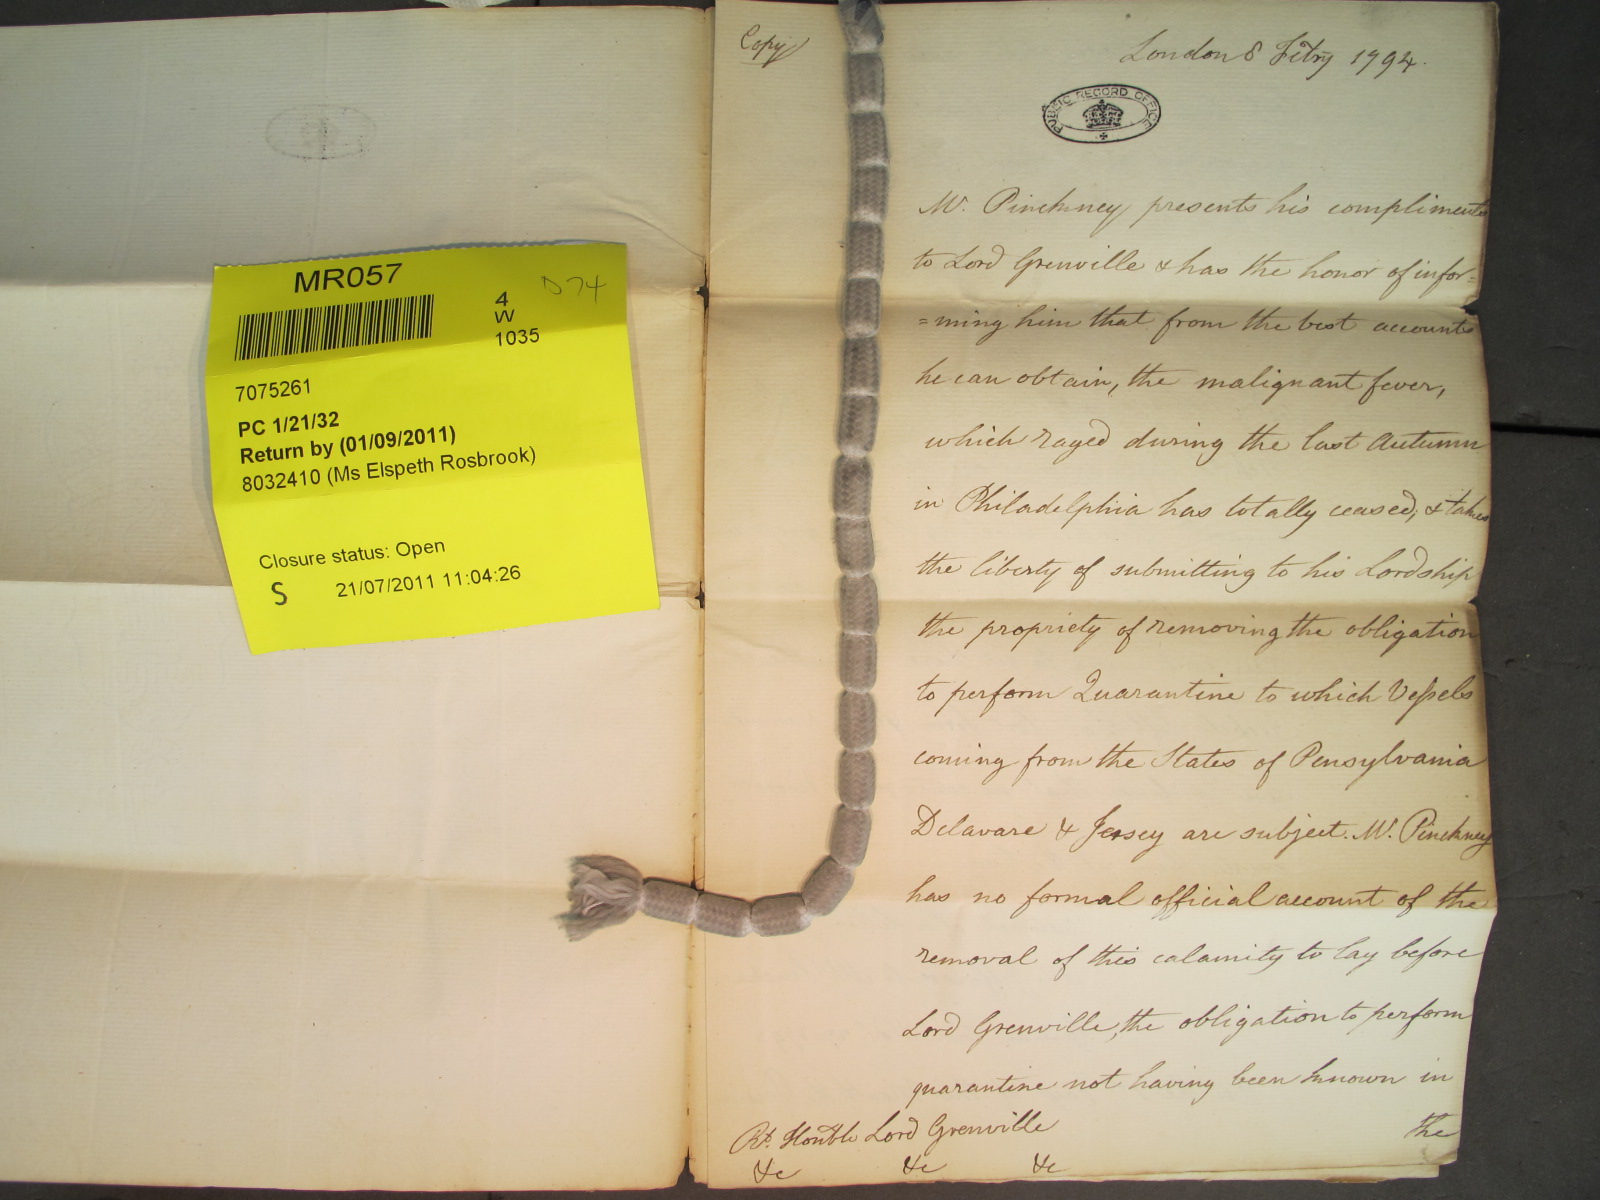 MR057
D74
4
W
1035
7075261
PC 1/21/32
Return by (01/09/2011)
8032410 (Ms Elspeth Rosbrook)
Closure status: Open
S 21/07/2011 11:04:26
Copy
London 8 Febry 1794.
PUBLIC RECORD OFFICE
Mr. Pinckney presents his compliments
to Lord Grenville & has the honor of infor=
=ming him that from the best accounts
he can obtain, the malignant fever,
which raged during the last Autumn
in Philadelphia has totally ceased; & takes
the liberty of submitting to his Lordship
the propriety of removing the obligation
to perform Quarantine to which Vessels
coming from the States of Pensylvania
Delavare & Jersey are subject. Mr. Pinckney
has no formal official account of the
removal of this calamity to lay before
Lord Grenville, the obligation to perform
quarantine not having been known in
the
Rt. Honble Lord Grenville
&c &c &c